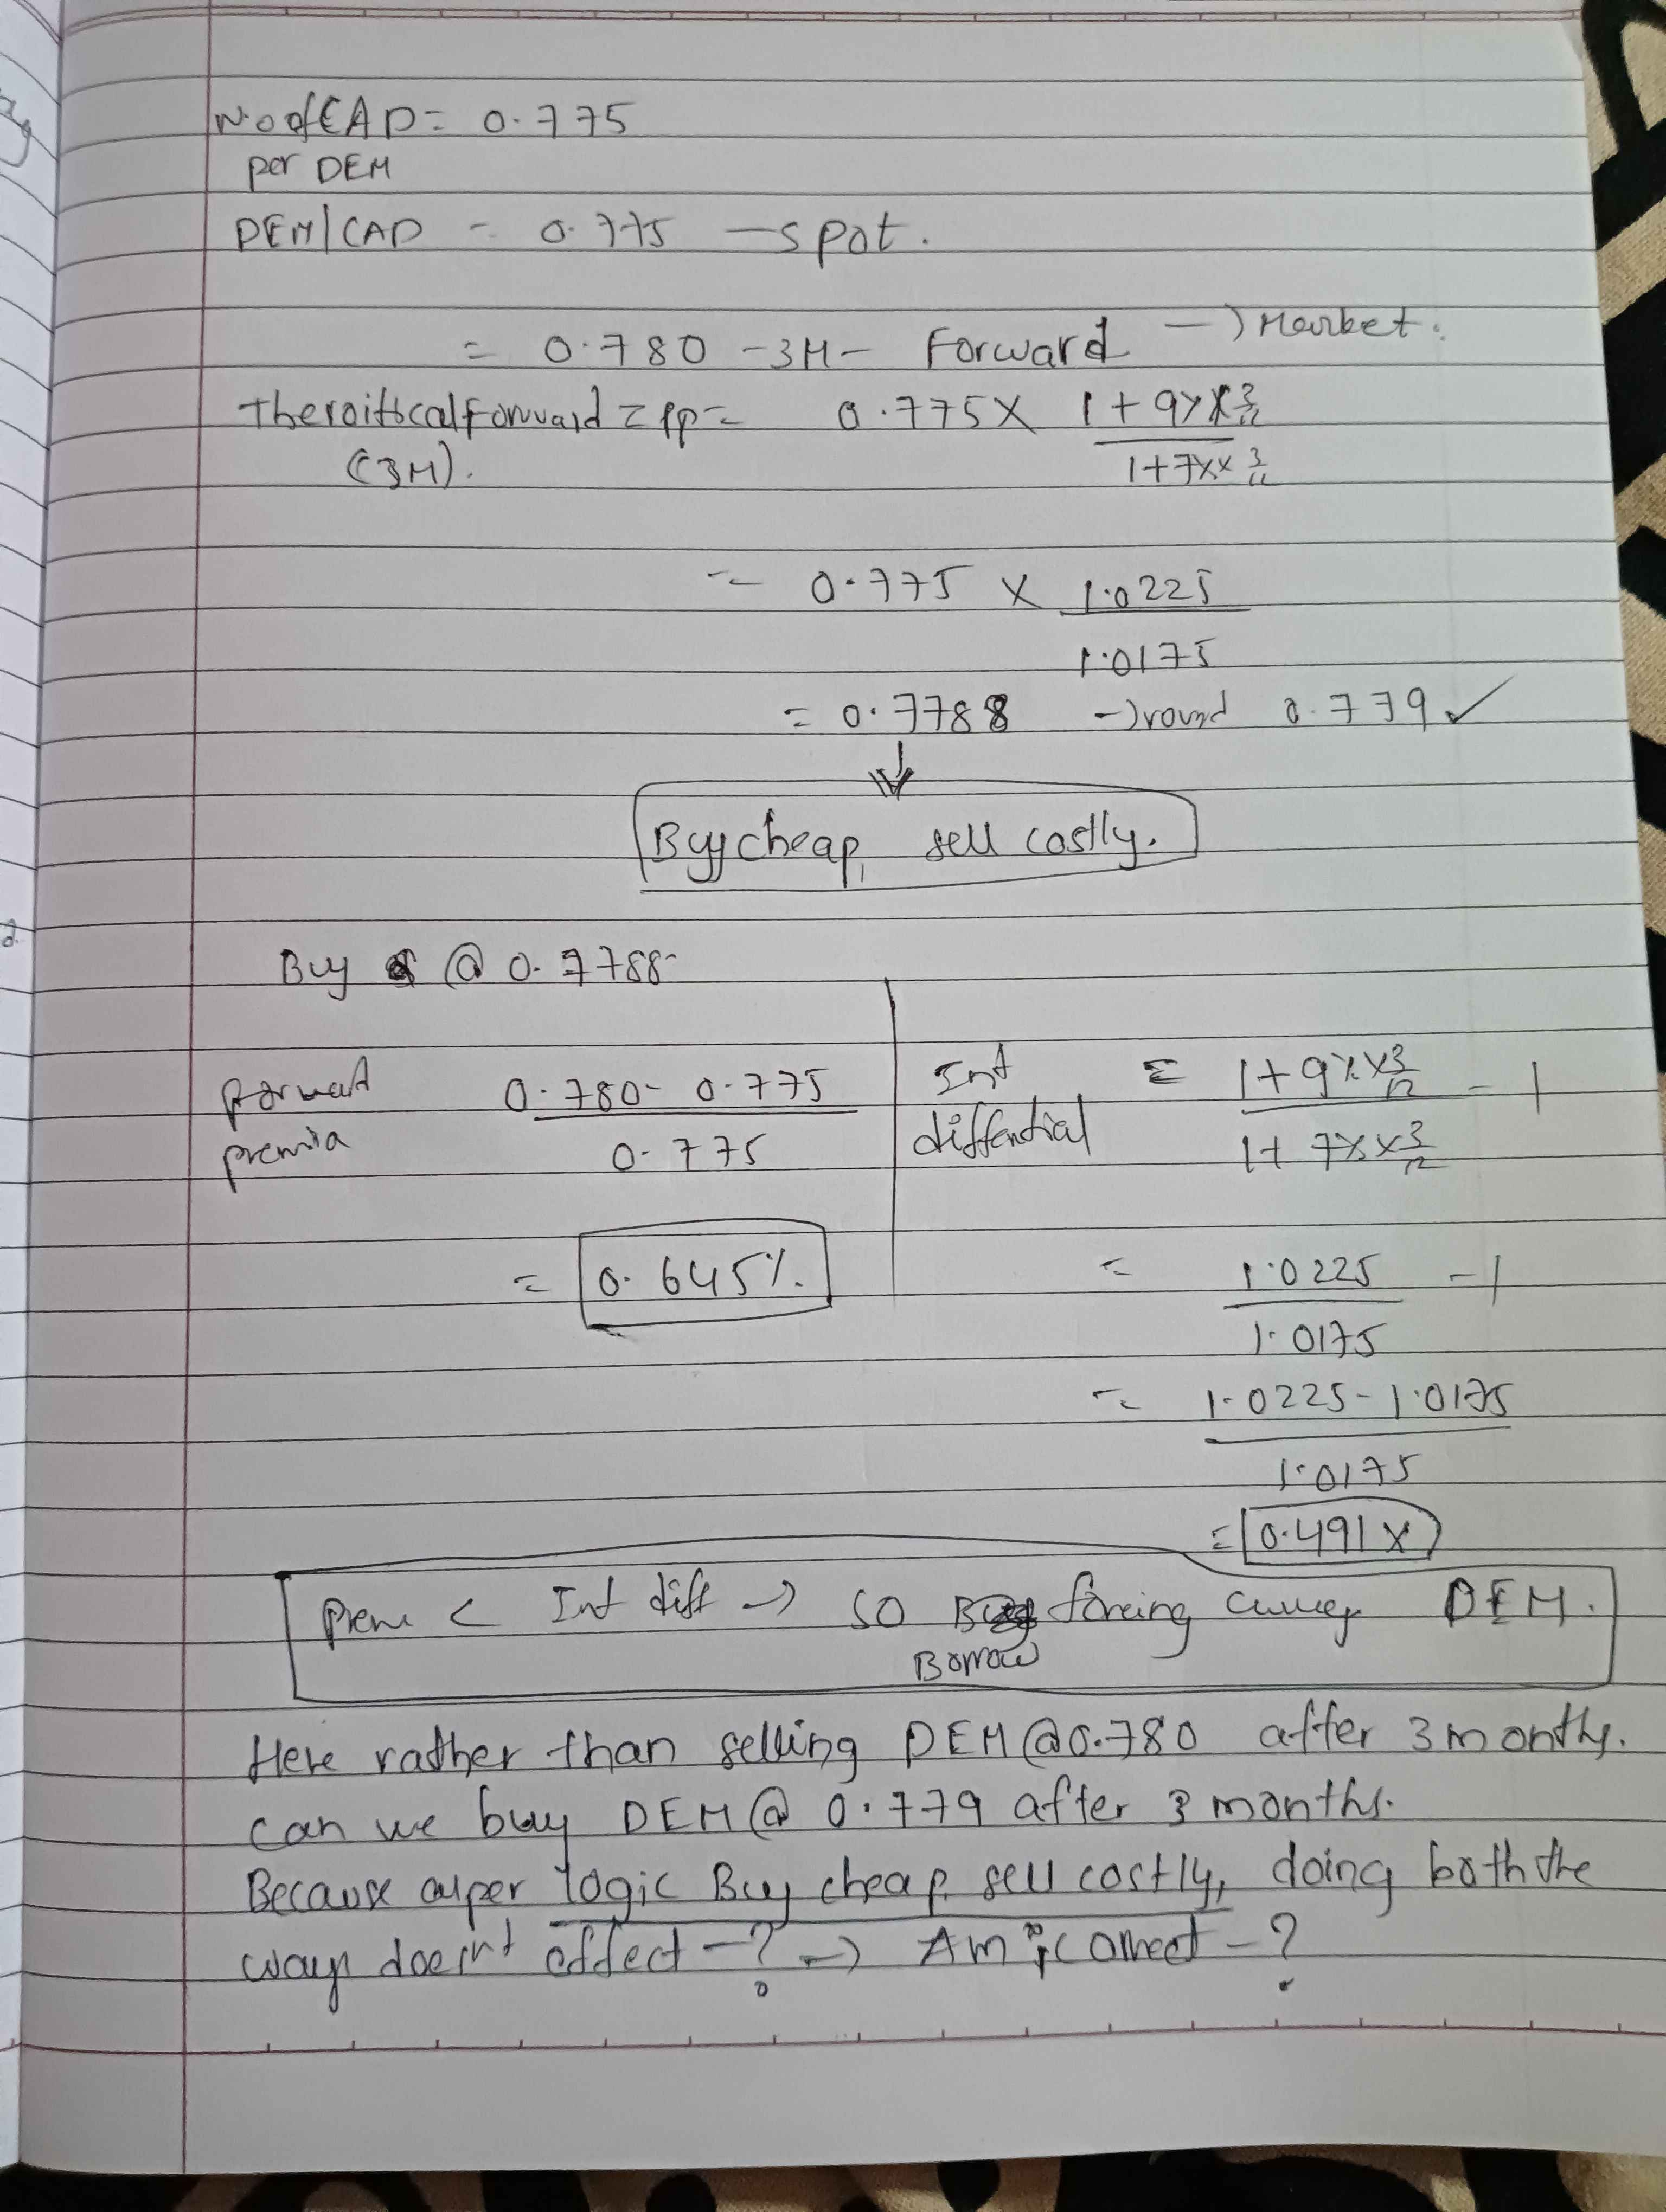 No of CAD = 0.775
per DEM
DEM/CAD = 0.775 — spot.
= 0.780 - 3M - Forward → Market.
Theroitical Forward = PP = 0.775 X 1 + 9% X 3/12
(3M). 1 + 7% X 3/12
= 0.775 X 1.0225
1.0175
= 0.7788 → round 0.779 ✓
Buy cheap, sell costly.
Buy @ 0.7788
forward 0.780 - 0.775
premia 0.775
= 0.645%.
Int = 1 + 9% X 3/12 - 1
diffential 1 + 7% X 3/12
= 1.0225 - 1
1.0175
= 1.0225 - 1.0175
1.0175
= 0.491%
Prem < Int diff → SO DEM.
Borrow
Here rather than selling DEM @ 0.780 after 3 months.
can we buy DEM @ 0.779 after 3 months.
Because as per logic Buy cheap sell costly, doing both the
ways doesn't effect - ? → Am I correct - ?